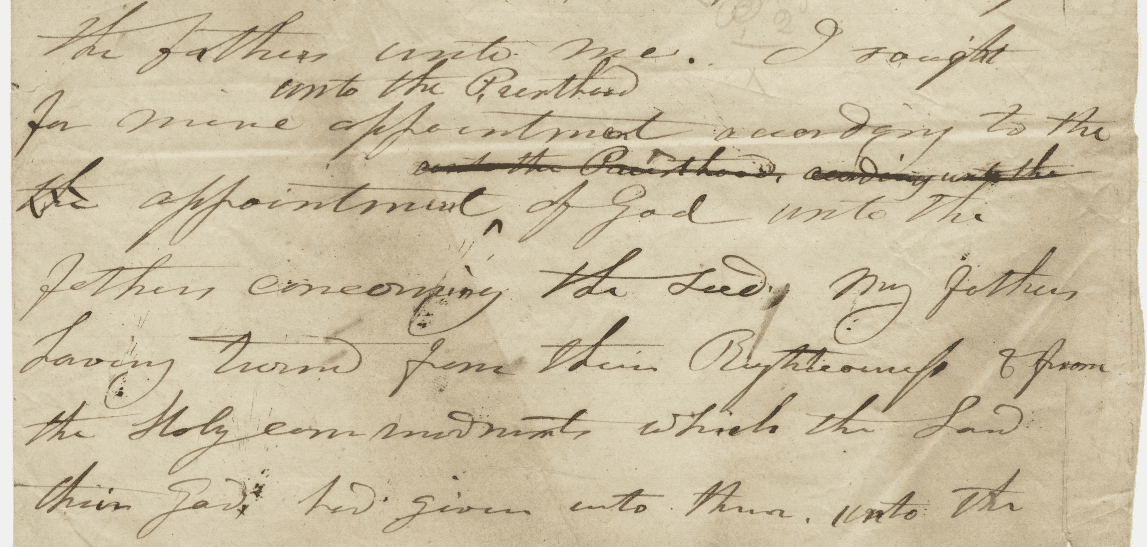 the fathers unto me. I saught
unto the Priesthood
for mine appointment according to the
unto the Priesthood, acording unto the
the appointment of God unto the
fathers concerning the seed, My fathers
having turned from their Righteousness & from
the Holy commandments which the Lord
their God, had given unto them. unto the